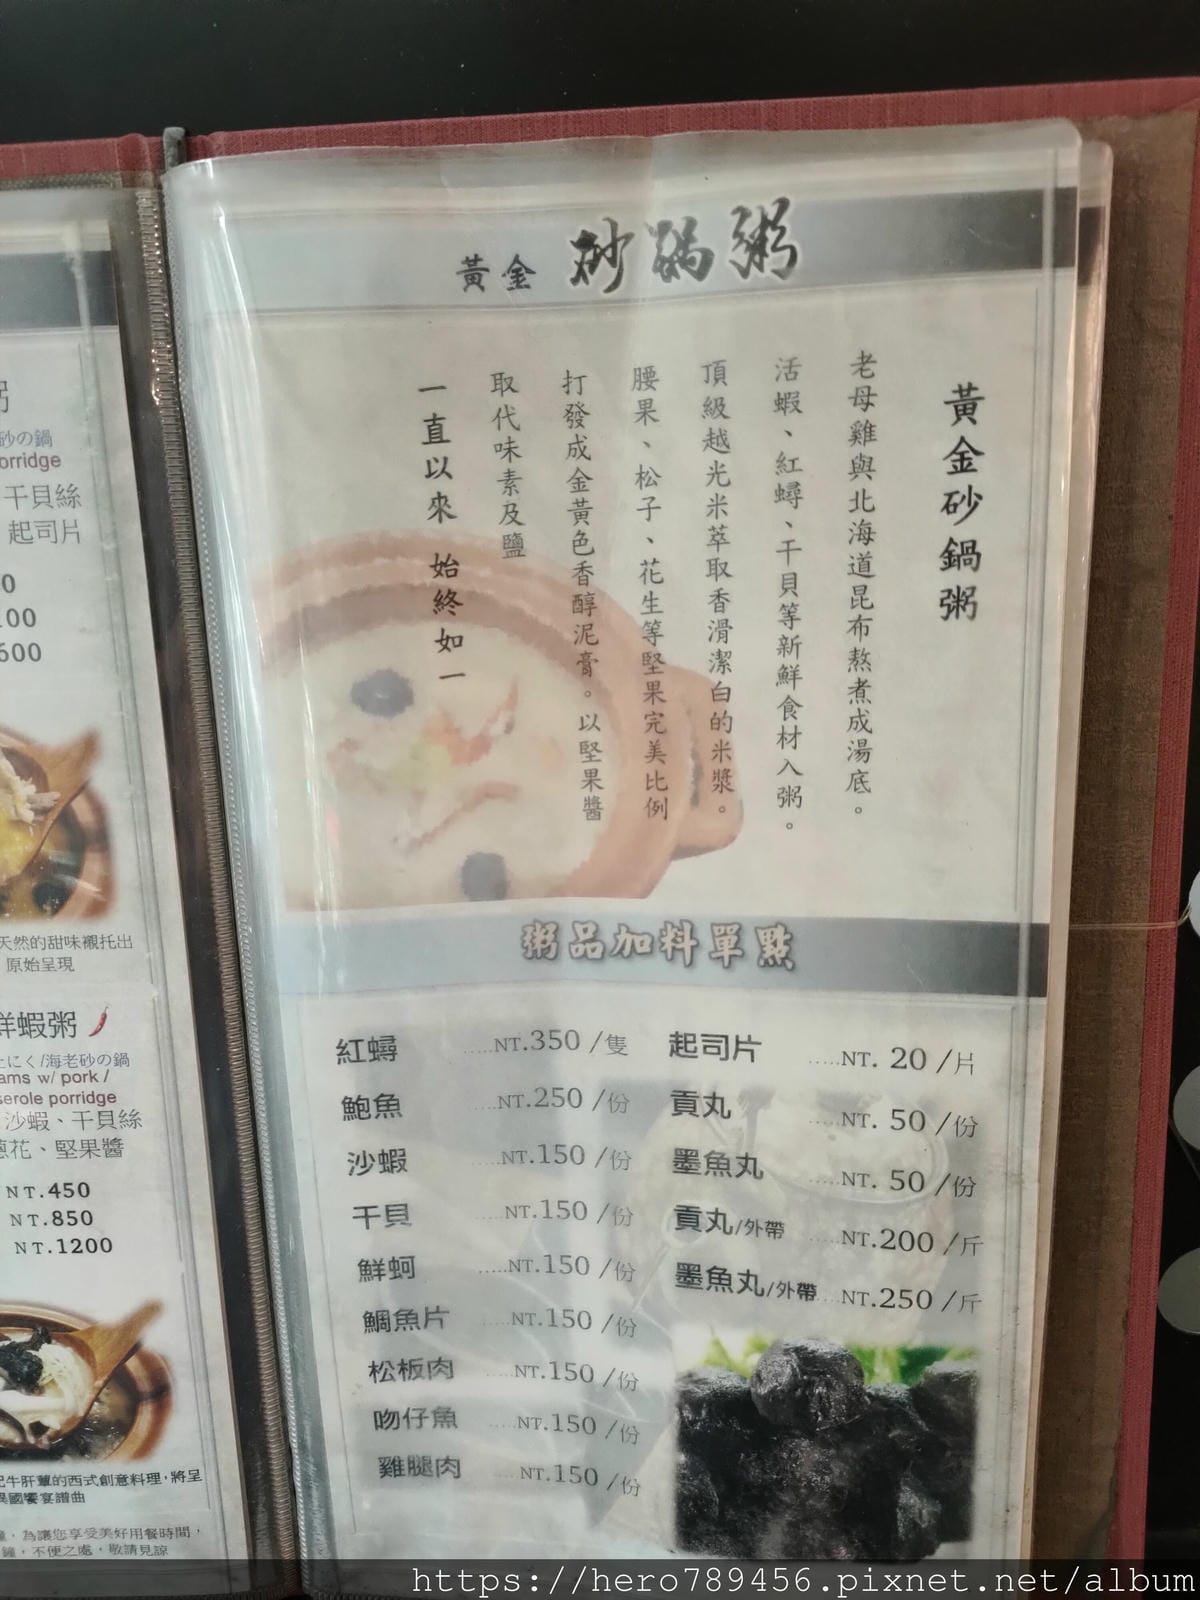 粥
砂の鍋
orridge
干貝絲
起司片
天然的甜味襯托出
原始呈現
鮮蝦粥
にく/海老砂の鍋
ams w/ pork /
serole porridge
沙蝦、干貝絲
蔥花、堅果醬
NT.450
NT.850
NT.1200
牛肝蕈的西式創意料理，將呈
異國饗宴譜曲
，為讓您享受美好用餐時間，
鐘，不便之處，敬請見諒
黃金 砂鍋粥
黃金砂鍋粥
老母雞與北海道昆布熬煮成湯底。
活蝦、紅蟳、干貝等新鮮食材入粥。
頂級越光米萃取香滑潔白的米漿。
腰果、松子、花生等堅果完美比例
打發成金黃色香醇泥膏。以堅果醬
取代味素及鹽
一直以來 始終如一
粥品加料單點
紅蟳 .....NT.350 /隻
鮑魚 .....NT.250 /份
沙蝦 .....NT.150 /份
干貝 .....NT.150 /份
鮮蚵 .....NT.150 /份
鯛魚片 .....NT.150 /份
松板肉 .....NT.150 /份
吻仔魚 .....NT.150 /份
雞腿肉 .....NT.150 /份
起司片 .....NT. 20 /片
貢丸 .....NT. 50 /份
墨魚丸 .....NT. 50 /份
貢丸/外帶 .....NT.200 /斤
墨魚丸/外帶 .....NT.250 /斤
https://hero789456.pixnet.net/album